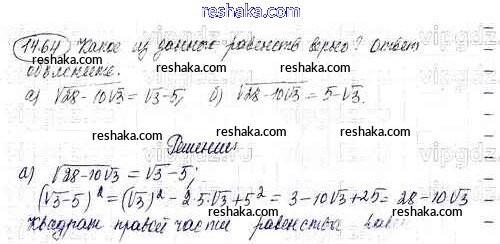 reshaka.com
14.64 Какое из данных равенств верно? Ответ
объясните.
reshaka.com reshaka.com
а) √28-10√3 = √3-5; б) √28-10√3 = 5-√3.
reshaka.com
Решение:
reshaka.com reshaka.com
а) √28-10√3 = √3-5;
(√3-5)² = (√3)² - 2·5·√3+5² = 3-10√3+25 = 28-10√3
reshaka.com
Квадрат правой части равенства